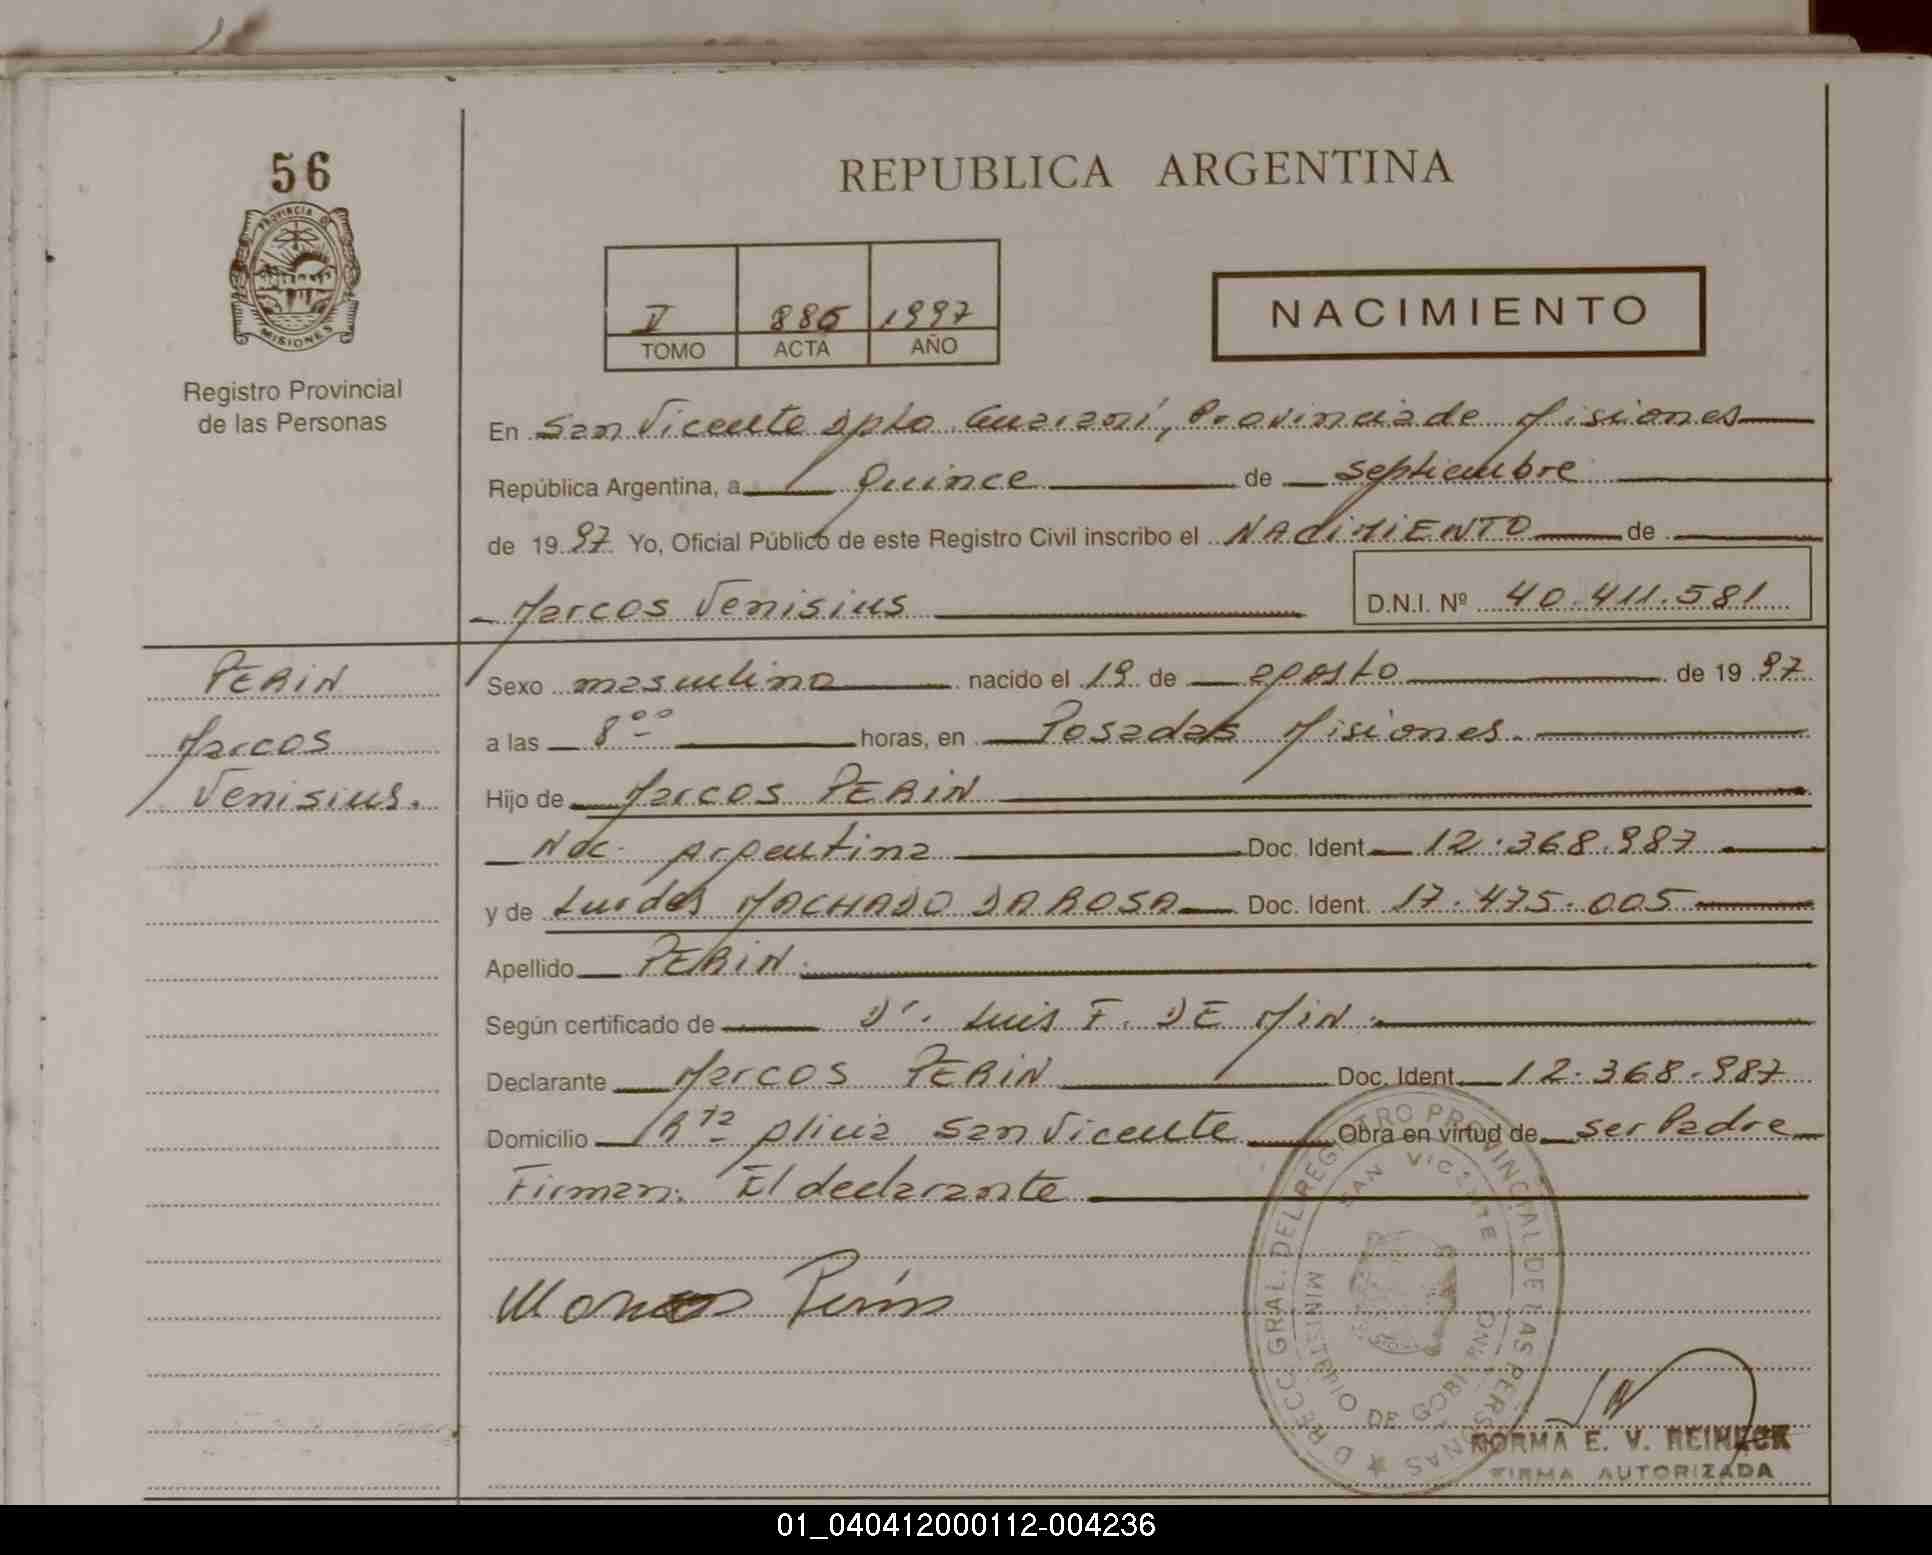 56
PROVINCIA D
MISIONES
Registro Provincial
de las Personas
REPUBLICA ARGENTINA
II 886 1997
TOMO ACTA AÑO
NACIMIENTO
En San Vicente Dpto. Guaraní, Provincia de Misiones
República Argentina, a Quince de septiembre
de 1997 Yo, Oficial Público de este Registro Civil inscribo el NACIMIENTO de
Marcos Venisius D.N.I. Nº 40.411.581
PERIN
Marcos
Venisius.
Sexo masculino nacido el 19 de agosto de 1997
a las 8 00 horas, en Posadas Misiones.
Hijo de Marcos PERIN
Nac. Argentina Doc. Ident. 12.368.987
y de Lurdes MACHADO DA ROSA Doc. Ident. 17.475.005
Apellido PERIN.
Según certificado de Dr. Luis F. DE MIN.
Declarante Marcos PERIN Doc. Ident. 12.368.987
Domicilio San Vicente Obra en virtud de ser Padre
Firman: El declarante
Marcos Perin
DIRECC. GRAL. DEL REGISTRO PROVINCIAL DE LAS PERSONAS
SAN VICENTE
MINISTERIO DE GOBIERNO
NORMA E. V. REINECK
FIRMA AUTORIZADA
01_040412000112-004236